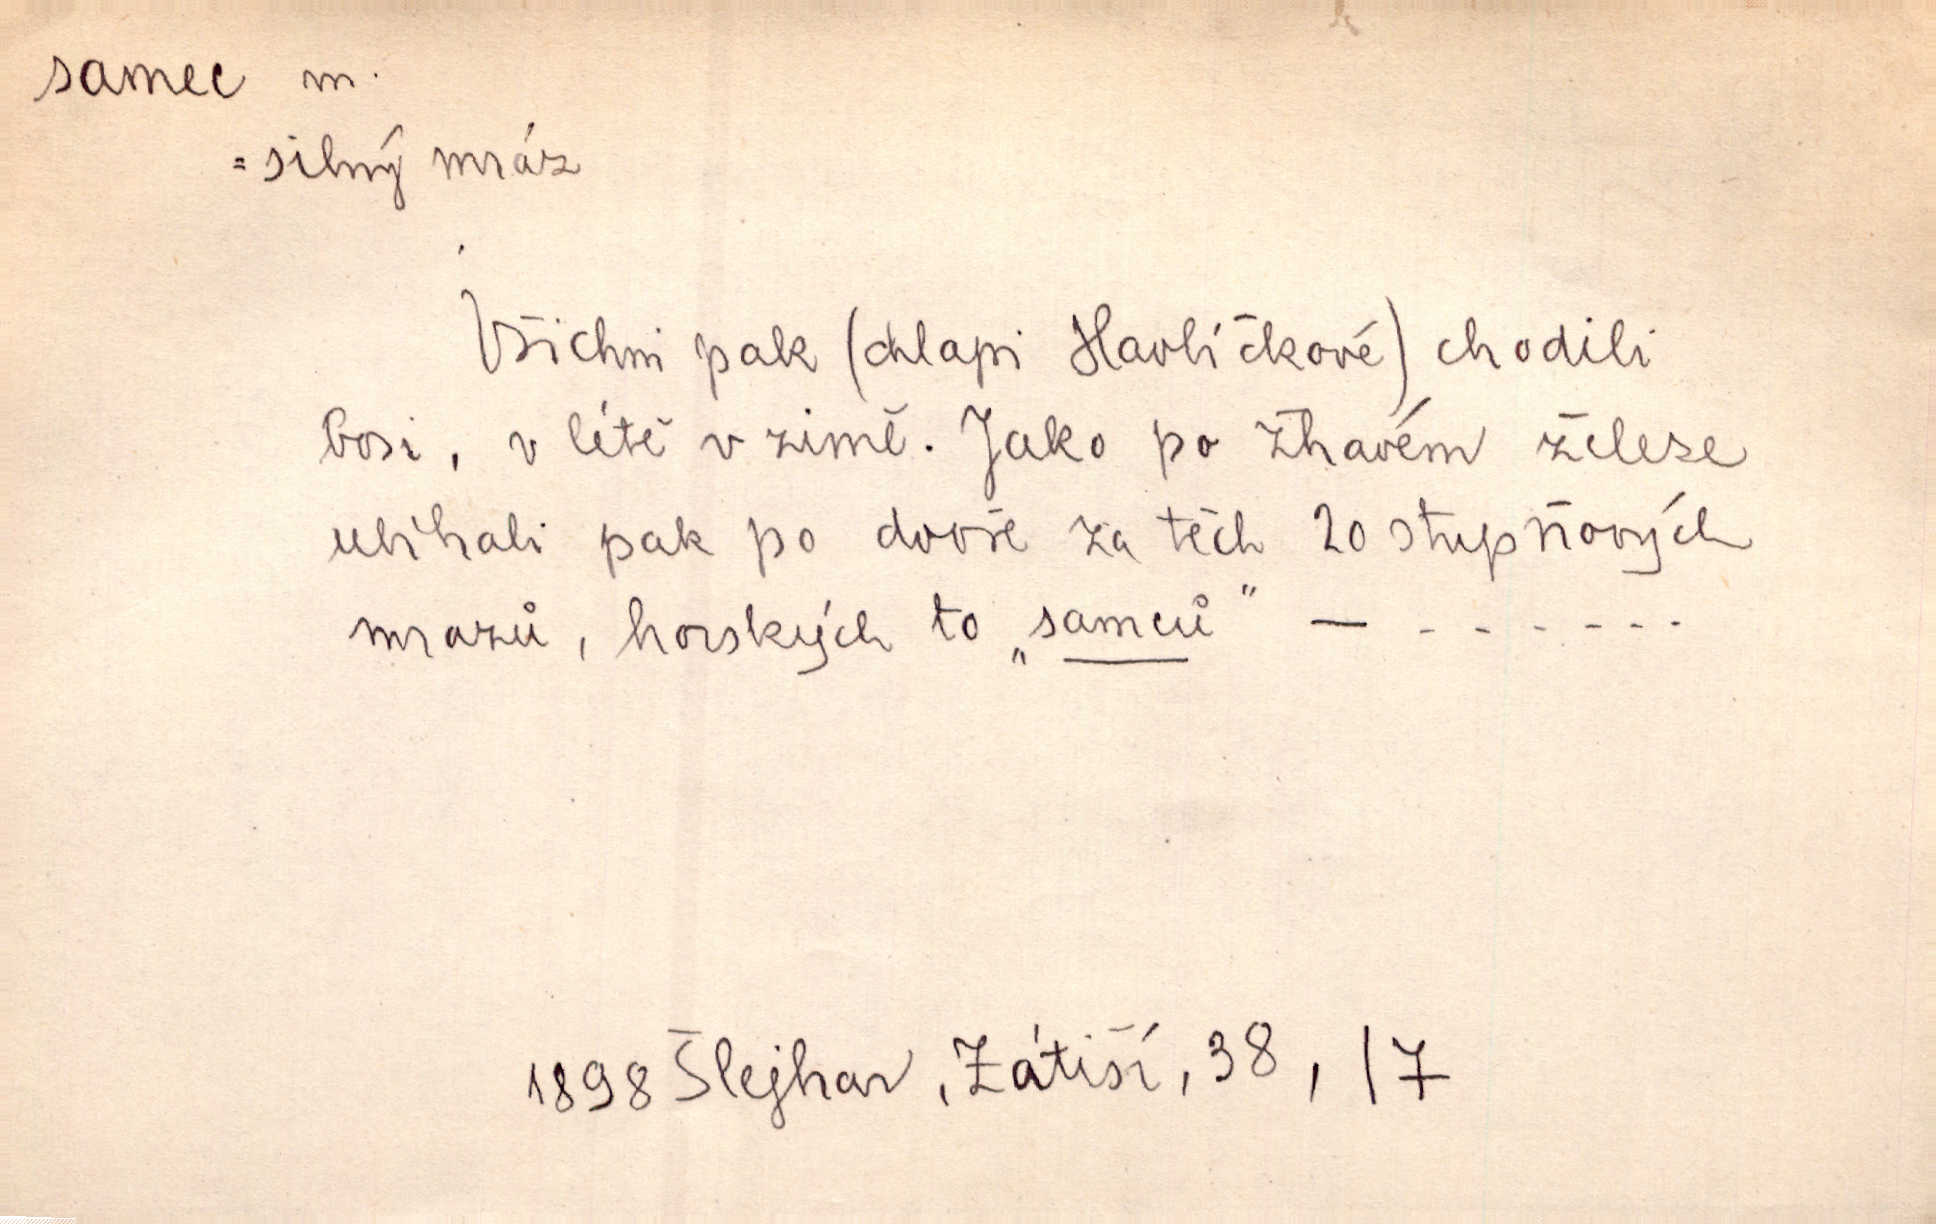 samec m.
= silný mráz
Všichni pak (chlapi Havlíčkové) chodili
bosi, v létě v zimě. Jako po žhavém železe
ubíhali pak po dvoře za těch 20 stupňových
mrazů, horských to „samců" — - - - - - - -
1898 Šlejhar, Zátiší, 38, 17